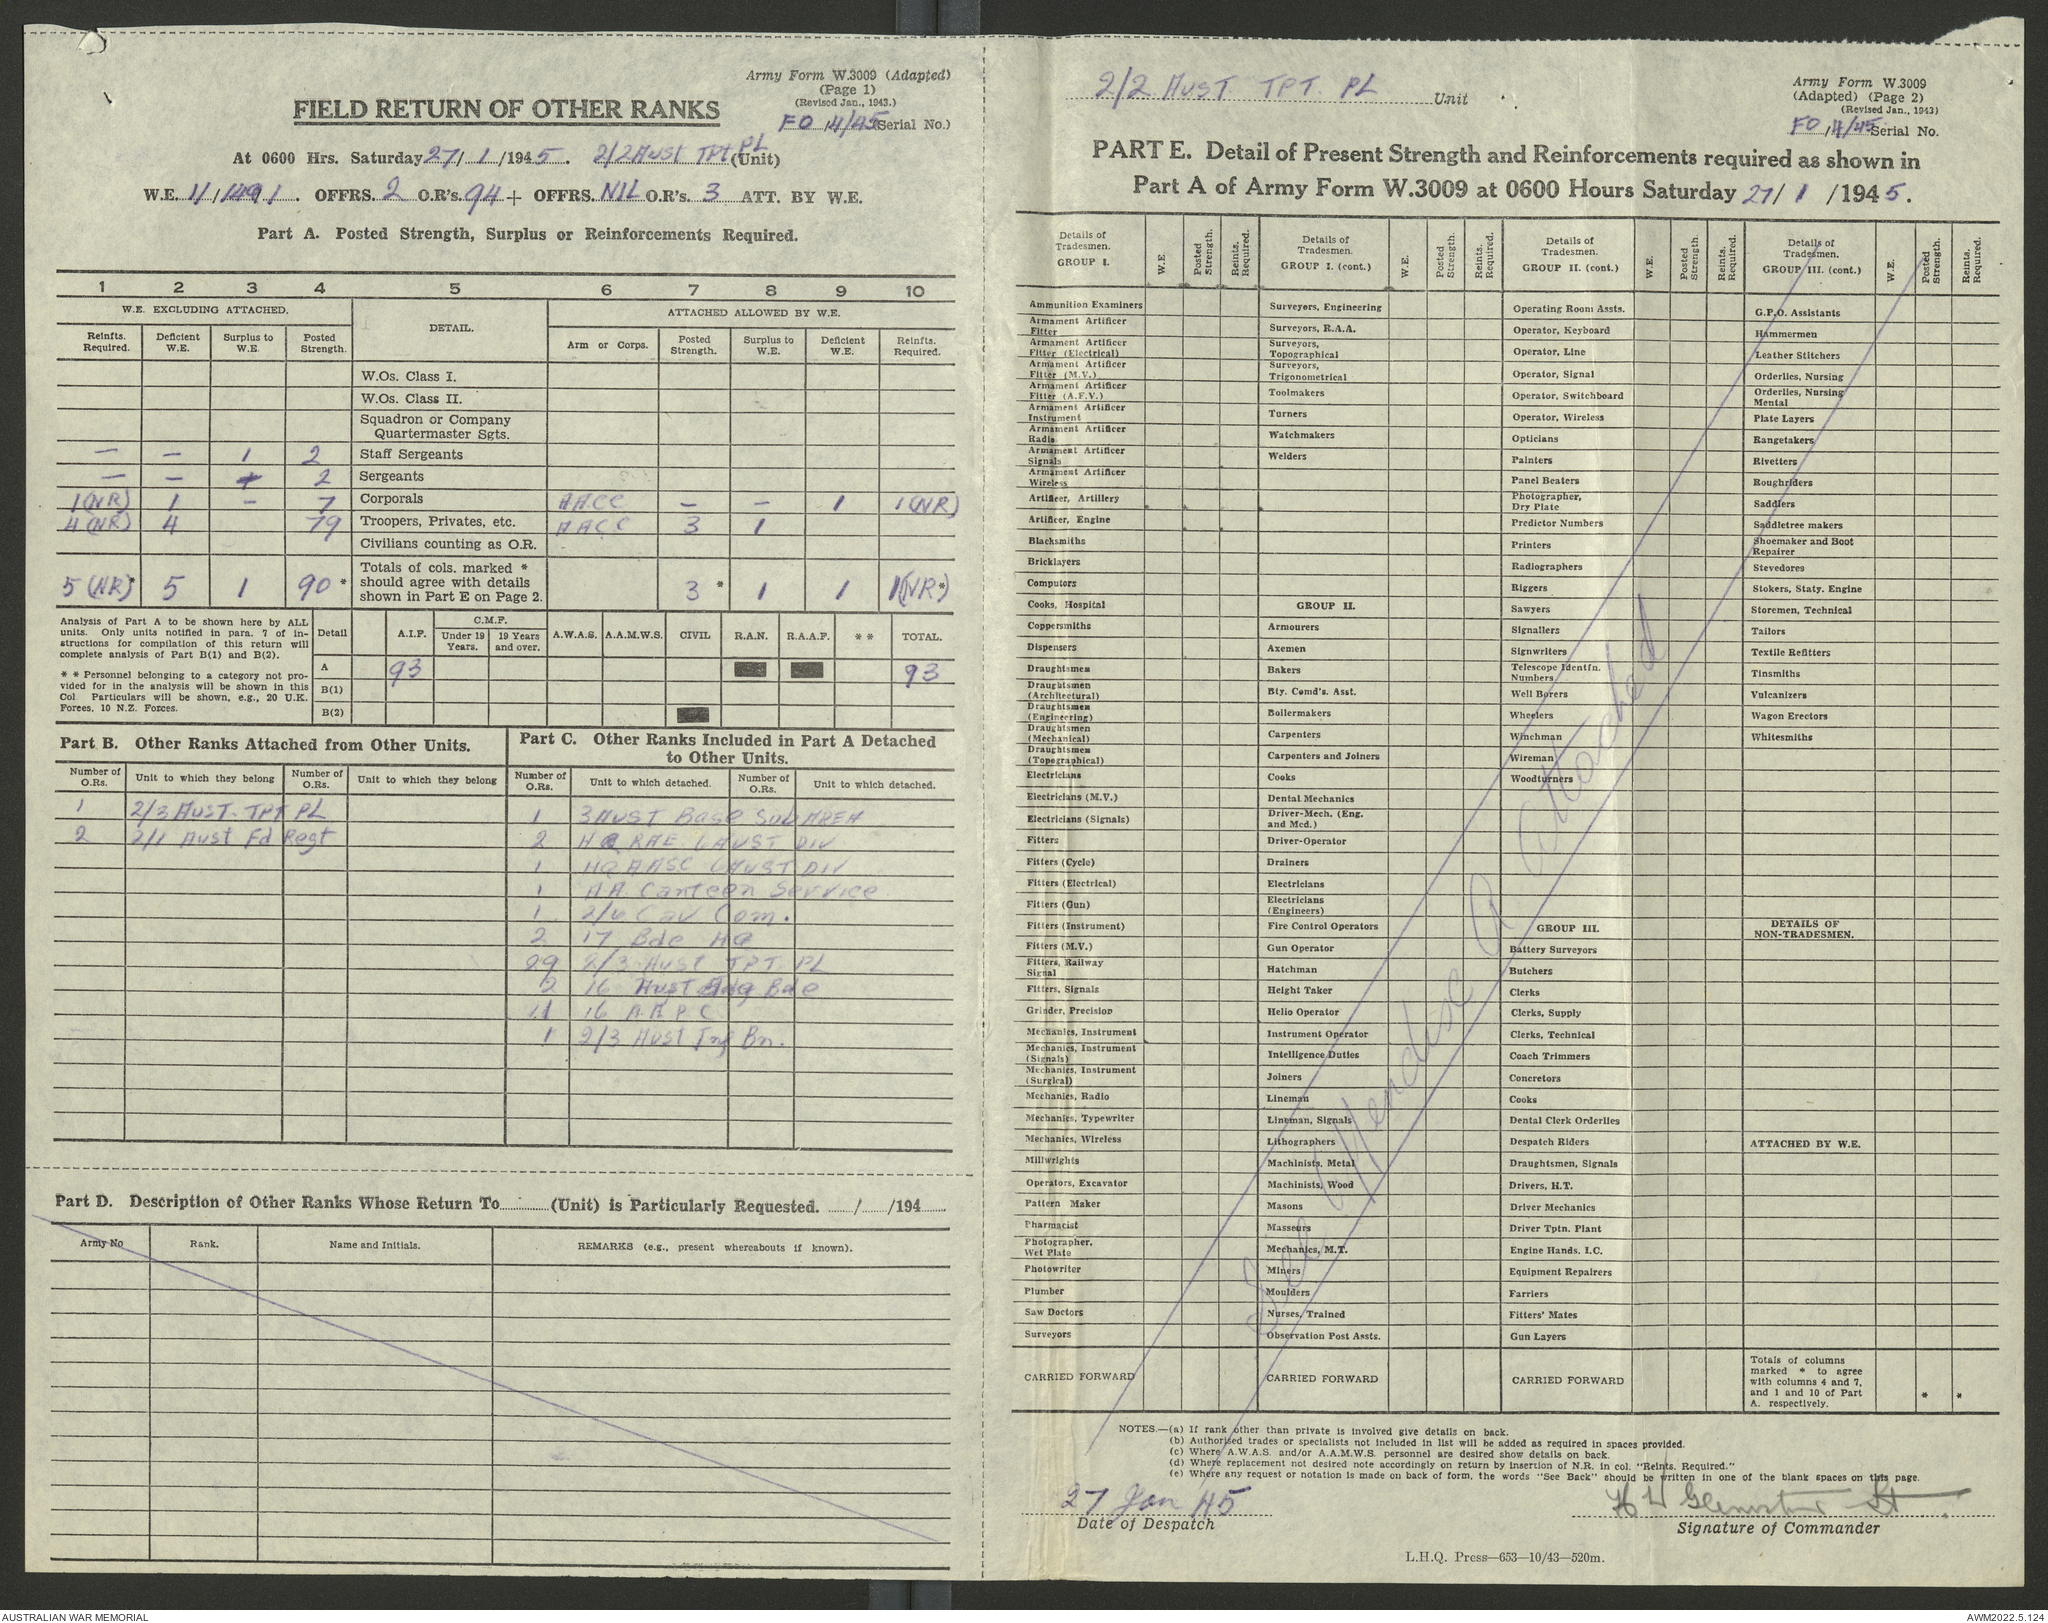 Army Form W.3009 (Adapted)
(Page 1)
(Revised Jan., 1943.)
FIELD RETURN OF OTHER RANKS
FO /4/45 (Serial No.)
At 0600 Hrs. Saturday 27/1/1945. 2/2 Aust TPT PL (Unit)
W.E. 11/1491. OFFRS. 2 O.R's. 94 + OFFRS. NIL O.R's. 3 ATT. BY W.E.
Part A. Posted Strength, Surplus or Reinforcements Required.
1 2 3 4 5 6 7 8 9 10
W.E. EXCLUDING ATTACHED. DETAIL. ATTACHED ALLOWED BY W.E.
Reinfts. Required. Deficient W.E. Surplus to W.E. Posted Strength. Arm or Corps. Posted Strength. Surplus to W.E. Deficient W.E. Reinfts. Required.
W.Os. Class I.
W.Os. Class II.
Squadron or Company
Quartermaster Sgts.
— — 1 2 Staff Sergeants
— — 2 Sergeants
1(NR) 1 – 7 Corporals AACC – – 1 1(NR)
4(NR) 4 79 Troopers, Privates, etc. AACC 3 1
Civilians counting as O.R.
5(NR)* 5 1 90* Totals of cols. marked * should agree with details shown in Part E on Page 2. 3* 1 1 1(NR*)
Analysis of Part A to be shown here by ALL
units. Only units notified in para. 7 of in-
structions for compilation of this return will
complete analysis of Part B(1) and B(2).
* * Personnel belonging to a category not pro-
vided for in the analysis will be shown in this
Col. Particulars will be shown, e.g., 20 U.K.
Forces, 10 N.Z. Forces.
Detail A.I.F. C.M.F. Under 19 Years. 19 Years and over. A.W.A.S. A.A.M.W.S. CIVIL R.A.N. R.A.A.F. * * TOTAL.
A 93 93
B(1)
B(2)
Part B. Other Ranks Attached from Other Units.
Number of O.Rs. Unit to which they belong Number of O.Rs. Unit to which they belong
1 2/3 Aust. TPT PL
2 2/1 Aust Fd Regt
Part C. Other Ranks Included in Part A Detached
to Other Units.
Number of O.Rs. Unit to which detached. Number of O.Rs. Unit to which detached.
1 3 Aust Base Sub AREA
2 HQ RAE 6 AUST DIV
1 HQ AASC 6 AUST DIV
1 A.A. Canteen Service
1 2/6 Cav Com.
2 17 Bde HQ
29 2/3 Aust TPT PL
2 16 Aust Bde
16 A.A.P.C
1 2/3 Aust Inf Bn.
Part D. Description of Other Ranks Whose Return To (Unit) is Particularly Requested. / /194
Army No Rank. Name and Initials. REMARKS (e.g., present whereabouts if known).
2/2 AUST TPT. PL Unit
Army Form W.3009
(Adapted) (Page 2)
(Revised Jan., 1943)
FO /4/45 Serial No.
PART E. Detail of Present Strength and Reinforcements required as shown in
Part A of Army Form W.3009 at 0600 Hours Saturday 27/1/1945.
Details of Tradesmen. GROUP I. W.E. Posted Strength. Reints. Required.
Ammunition Examiners
Armament Artificer Fitter
Armament Artificer Fitter (Electrical)
Armament Artificer Fitter (M.V.)
Armament Artificer Fitter (A.F.V.)
Armament Artificer Instrument
Armament Artificer Radio
Armament Artificer Signals
Armament Artificer Wireless
Artificer, Artillery
Artificer, Engine
Blacksmiths
Bricklayers
Computors
Cooks, Hospital
Coppersmiths
Dispensers
Draughtsmen
Draughtsmen (Architectural)
Draughtsmen (Engineering)
Draughtsmen (Mechanical)
Draughtsmen (Topographical)
Electricians
Electricians (M.V.)
Electricians (Signals)
Fitters
Fitters (Cycle)
Fitters (Electrical)
Fitters (Gun)
Fitters (Instrument)
Fitters (M.V.)
Fitters, Railway Signal
Fitters, Signals
Grinder, Precision
Mechanics, Instrument
Mechanics, Instrument (Signals)
Mechanics, Instrument (Surgical)
Mechanics, Radio
Mechanics, Typewriter
Mechanics, Wireless
Millwrights
Operators, Excavator
Pattern Maker
Pharmacist
Photographer, Wet Plate
Photowriter
Plumber
Saw Doctors
Surveyors
CARRIED FORWARD
Details of Tradesmen. GROUP I. (cont.) W.E. Posted Strength. Reints. Required.
Surveyors, Engineering
Surveyors, R.A.A.
Surveyors, Topographical
Surveyors, Trigonometrical
Toolmakers
Turners
Watchmakers
Welders
GROUP II.
Armourers
Axemen
Bakers
Bty. Comd's. Asst.
Boilermakers
Carpenters
Carpenters and Joiners
Cooks
Dental Mechanics
Driver-Mech. (Eng. and Med.)
Driver-Operator
Drainers
Electricians
Electricians (Engineers)
Fire Control Operators
Gun Operator
Hatchman
Height Taker
Helio Operator
Instrument Operator
Intelligence Duties
Joiners
Lineman
Lineman, Signals
Lithographers
Machinists, Metal
Machinists, Wood
Masons
Masseurs
Mechanics, M.T.
Miners
Moulders
Nurses, Trained
Observation Post Assts.
CARRIED FORWARD
Details of Tradesmen. GROUP II. (cont.) W.E. Posted Strength. Reints. Required.
Operating Room Assts.
Operator, Keyboard
Operator, Line
Operator, Signal
Operator, Switchboard
Operator, Wireless
Opticians
Painters
Panel Beaters
Photographer, Dry Plate
Predictor Numbers
Printers
Radiographers
Riggers
Sawyers
Signallers
Signwriters
Telescope Identfn. Numbers
Well Borers
Wheelers
Winchman
Wireman
Woodturners
GROUP III.
Battery Surveyors
Butchers
Clerks
Clerks, Supply
Clerks, Technical
Coach Trimmers
Concretors
Cooks
Dental Clerk Orderlies
Despatch Riders
Draughtsmen, Signals
Drivers, H.T.
Driver Mechanics
Driver Tptn. Plant
Engine Hands, I.C.
Equipment Repairers
Farriers
Fitters' Mates
Gun Layers
CARRIED FORWARD
Details of Tradesmen. GROUP III. (cont.) W.E. Posted Strength. Reints. Required.
G.P.O. Assistants
Hammermen
Leather Stitchers
Orderlies, Nursing
Orderlies, Nursing Mental
Plate Layers
Rangetakers
Rivetters
Roughriders
Saddlers
Saddletree makers
Shoemaker and Boot Repairer
Stevedores
Stokers, Staty. Engine
Storemen, Technical
Tailors
Textile Refitters
Tinsmiths
Vulcanizers
Wagon Erectors
Whitesmiths
DETAILS OF NON-TRADESMEN.
ATTACHED BY W.E.
Totals of columns marked * to agree with columns 4 and 7, and 1 and 10 of Part A. respectively. * *
See Appendix A attached
NOTES.—(a) If rank other than private is involved give details on back.
(b) Authorised trades or specialists not included in list will be added as required in spaces provided.
(c) Where A.W.A.S. and/or A.A.M.W.S. personnel are desired show details on back.
(d) Where replacement not desired note accordingly on return by insertion of N.R. in col. "Reints. Required."
(e) Where any request or notation is made on back of form, the words "See Back" should be written in one of the blank spaces on this page.
27 Jan 45
Date of Despatch
Signature of Commander
L.H.Q. Press—653—10/43—520m.
AUSTRALIAN WAR MEMORIAL
AWM2022.5.124